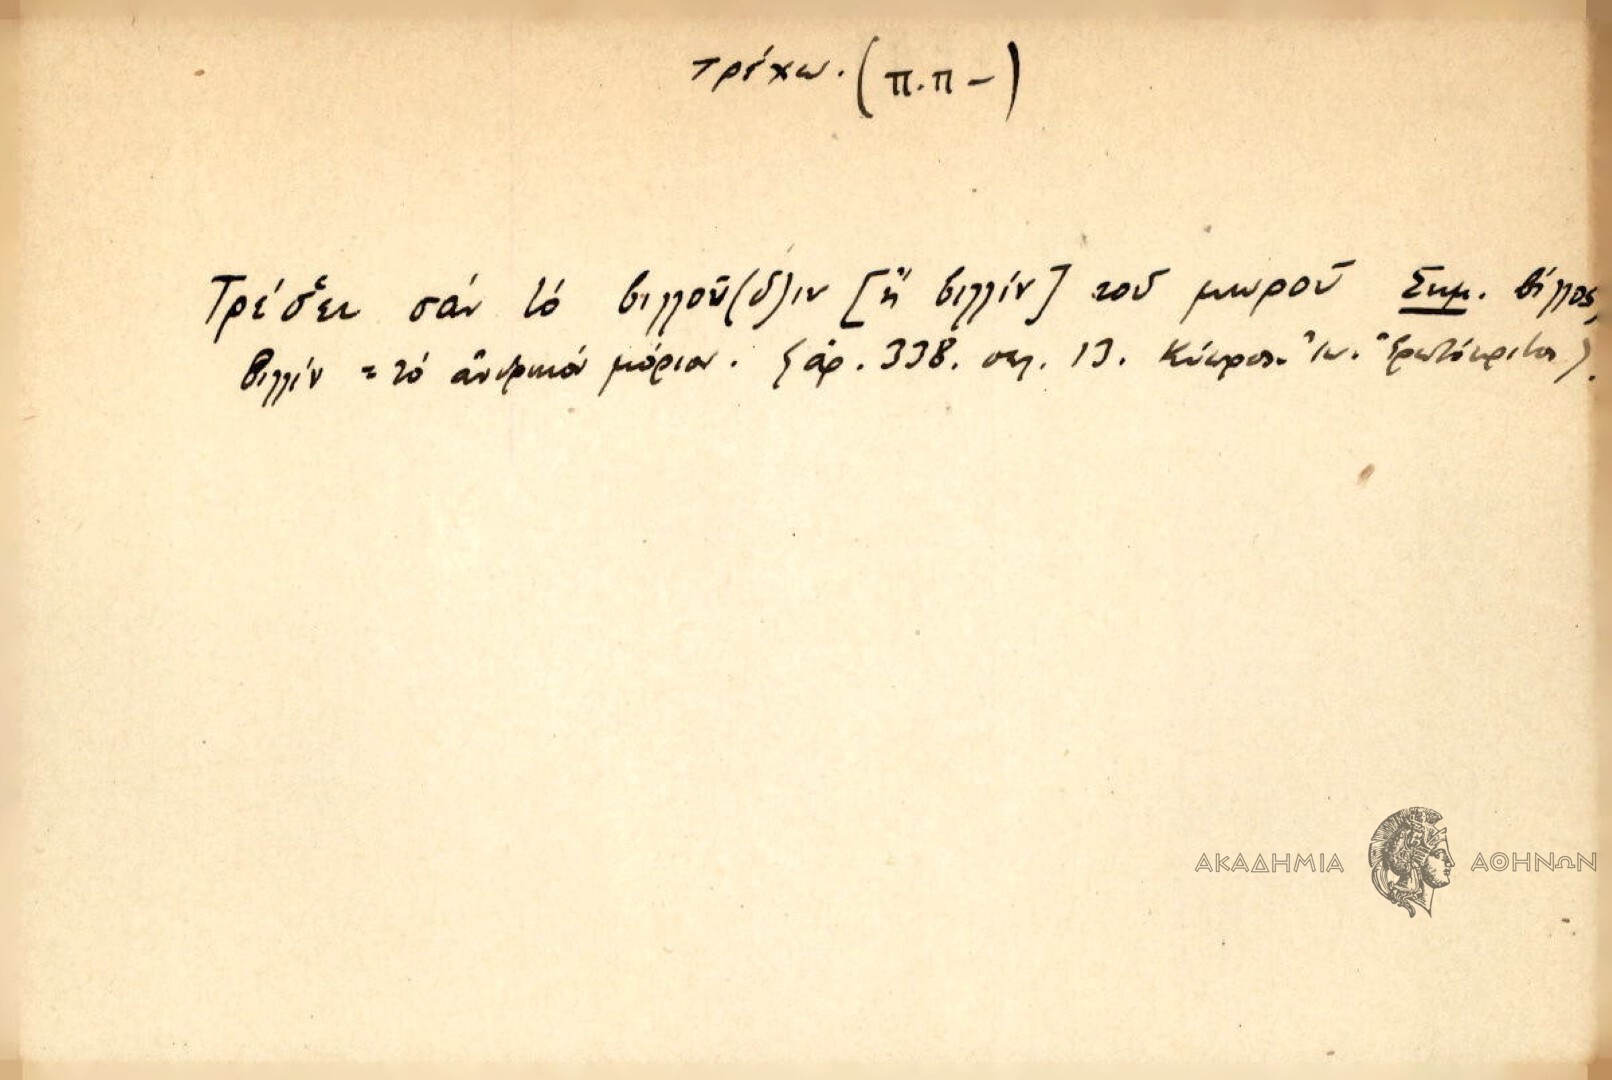 τρέχω. (π.π-)
Τρέσ̆ει σάν τό βιλλού(δ)ιν [ἤ βιλλίν] τοῦ μωροῦ Σημ. βίλλος,
βιλλίν = τό ἀνδρικόν μόριον. (ἀρ. 338. σελ. 13. Κύπρος. Ἰω. Ἐρωτόκριτος).
ΑΚΑΔΗΜΙΑ ΑΘΗΝΩΝ